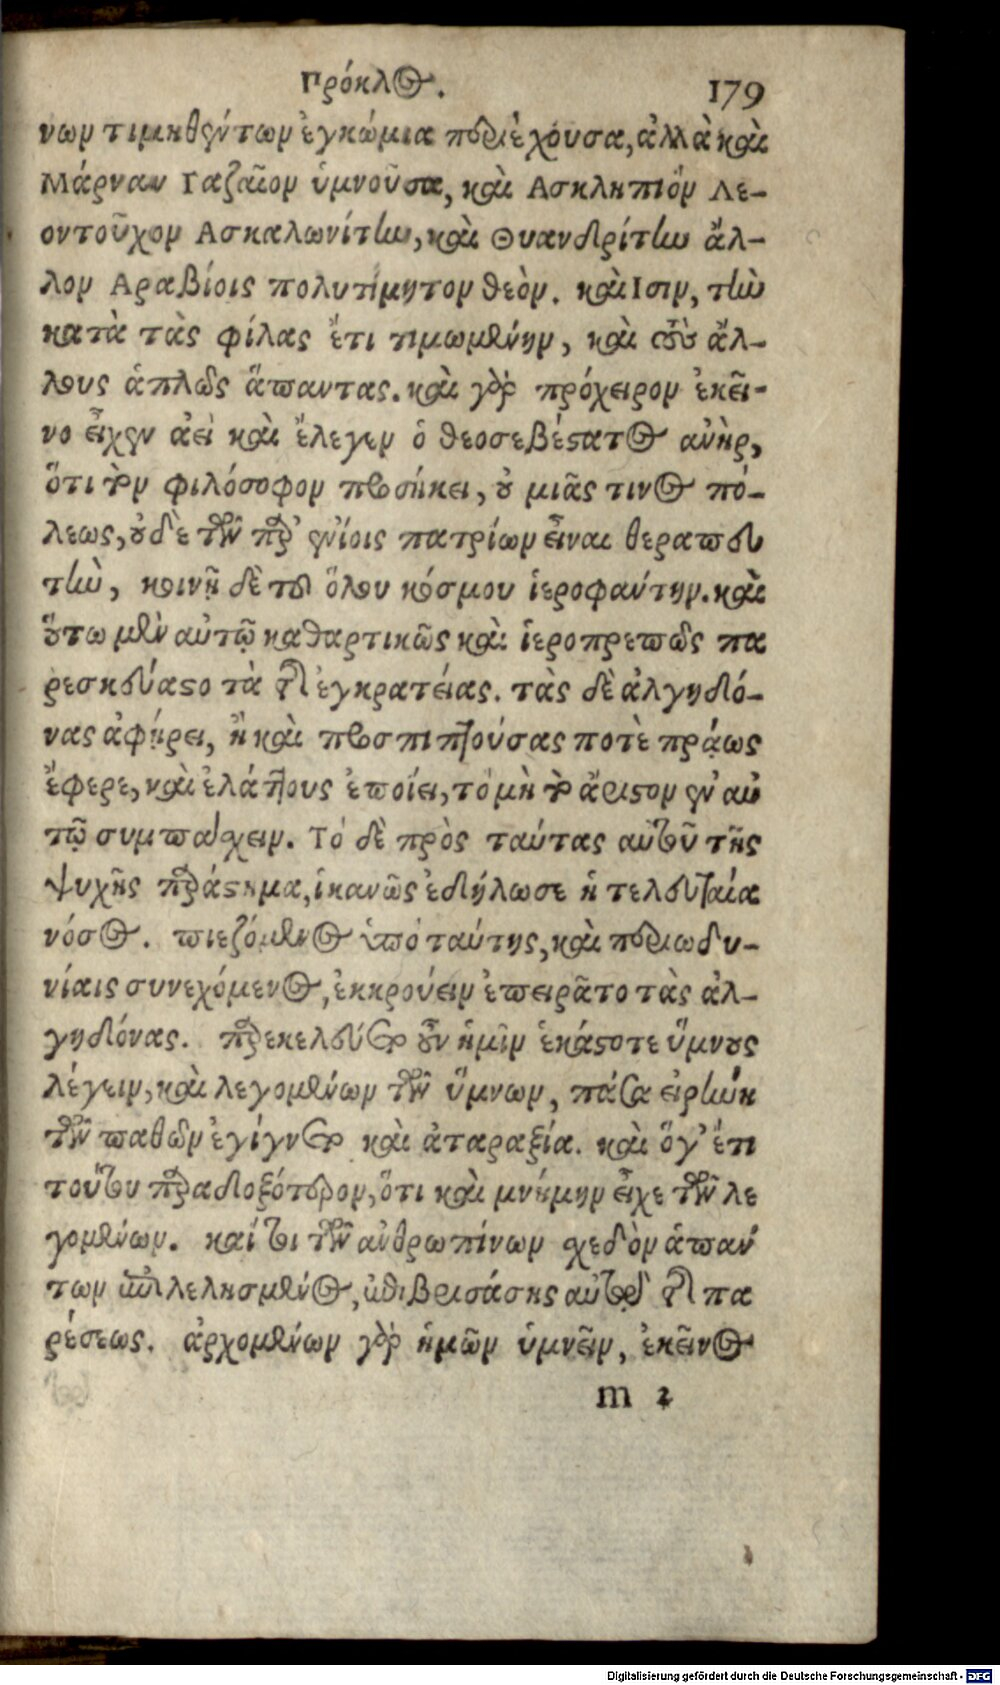 Πρόκλος. 179
νων τιμηθέντων ἐγκώμια περιέχουσα, ἀλλὰ καὶ
Μάρναν Γαζαῖον ὑμνοῦσα, καὶ Ασκληπιὸν Λε-
οντοῦχον Ασκαλωνίτην, καὶ Θυανδρίτην ἄλ-
λον Αραβίοις πολυτίμητον θεὸν. καὶ Ισιν, τὴν
κατὰ τὰς φίλας ἔτι τιμωμένην, καὶ τοὺς ἄλ-
λους ἁπλῶς ἅπαντας. καὶ γὰρ πρόχειρον ἐκεῖ-
νο εἶχεν ἀεὶ καὶ ἔλεγεν ὁ θεοσεβέστατος ἀνὴρ,
ὅτι τὸν φιλόσοφον προσήκει, οὐ μιᾶς τινος πό-
λεως, οὐδὲ τῶν παρ' ἐνίοις πατρίων εἶναι θεραπευ
τὴν, κοινῇ δὲ τοῦ ὅλου κόσμου ἱεροφάντην. καὶ
οὕτω μὲν αὐτῷ καθαρτικῶς καὶ ἱεροπρεπῶς πα
ρεσκεύαστο τὰ τῆς ἐγκρατείας. τὰς δὲ ἀλγηδό-
νας ἀφῄρει, ἢ καὶ προσπιπτούσας ποτὲ πρᾴως
ἔφερε, καὶ ἐλάττους ἐποίει, τὸ μὴ τὸ ἄριστον ἐν αὐ
τῷ συμπάσχειν. Τὸ δὲ πρὸς ταύτας αὐτοῦ τῆς
ψυχῆς παράστημα, ἱκανῶς ἐδήλωσε ἡ τελευταία
νόσος. πιεζόμενος ὑπὸ ταύτης, καὶ περιωδυ-
νίαις συνεχόμενος, ἐκκρούειν ἐπειρᾶτο τὰς ἀλ-
γηδόνας. παρεκελεύετο οὖν ἡμῖν ἑκάστοτε ὕμνους
λέγειν, καὶ λεγομένων τῶν ὕμνων, πᾶσα εἰρήνη
τῶν παθῶν ἐγίγνετο καὶ ἀταραξία. καὶ ὅγ' ἔτι
τούτου παραδοξότερον, ὅτι καὶ μνήμην εἶχε τῶν λε
γομένων. καίτοι τῶν ἀνθρωπίνων σχεδὸν ἁπάν
των ἐπιλελησμένος, ἐπιβρισάσης αὐτῷ τῆς πα
ρέσεως. ἀρχομένων γὰρ ἡμῶν ὑμνεῖν, ἐκεῖνος
m 2
Digitalisierung gefördert durch die Deutsche Forschungsgemeinschaft - DFG